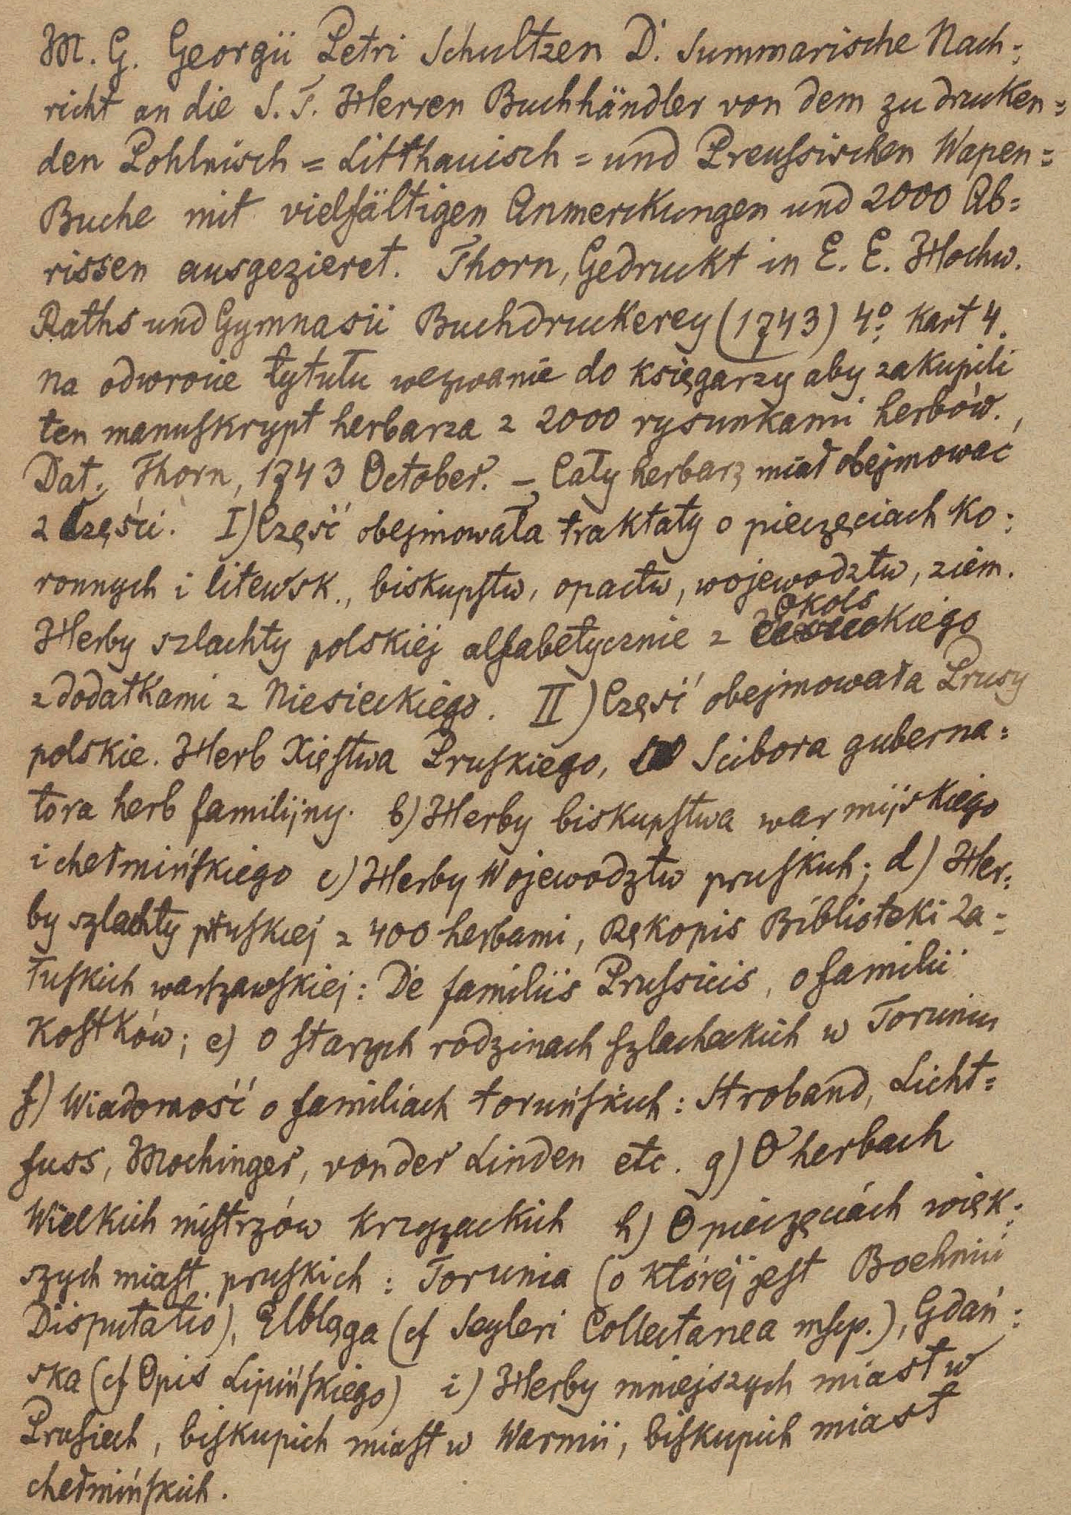 M. G. Georgii Petri Schultzen D. Summarische Nach=
richt an die S. T. Herren Buchhändler von dem zu drucken=
den Pohlnisch = Litthauisch = und Preuſsischen Wapen=
Buche mit vielfältigen Anmerckungen und 2000 Ab=
rissen ausgezieret. Thorn, Gedruckt in E. E. Hochw.
Raths und Gymnasii Buchdruckerey (1743) 4º kart 4.
na odwrocie tytułu wezwanie do księgarzy aby zakupili
ten manuſkrypt herbarza z 2000 rysunkami herbów.
Dat. Thorn, 1743 October. – Cały herbarz miał obejmować
2 części. I) Część obejmowała traktaty o pieczęciach ko=
ronnych i litewsk., biskupſtw, opactw, województw, ziem.
Herby szlachty polskiéj alfabetycznie z Okolskiego
z dodatkami z Niesieckiego. II) Część obejmowała Prusy
polskie. Herb Xięſtwa Pruſkiego, Scibora guberna=
tora herb familijny. b) Herby biskupſtwa warmijskiego
i chełmińſkiego c) Herby Województw pruſkich; d) Her=
by szlachty pruſkiej z 400 herbami, Rękopis Biblioteki Za=
łuſkich warſzawſkiej: De familiis Pruſsicis, o familii
Koſtków; e) O ſtarych rodzinach ſzlacheckich w Toruniu
f) Wiadomość o familiach toruńſkich: Stroband, Licht=
fuss, Mochinger, von der Linden etc. g) O herbach
Wielkich miſtrzów krzyżackich h) O pieczęciách więk=
szych miaſt pruſkich: Torunia (o któréj jest Boehmii
Disputatio), Elbląga (cf Seyleri Collectanea mſcp.), Gdań=
ska (cf Opis Lipińſkiego) i) Herby mniejszych miast w
Pruſiech, biſkupich miaſt w Warmii, biſkupich miast
chełmińſkich.